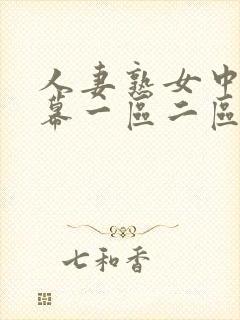 人妻熟女中
幕一區二區
七和香